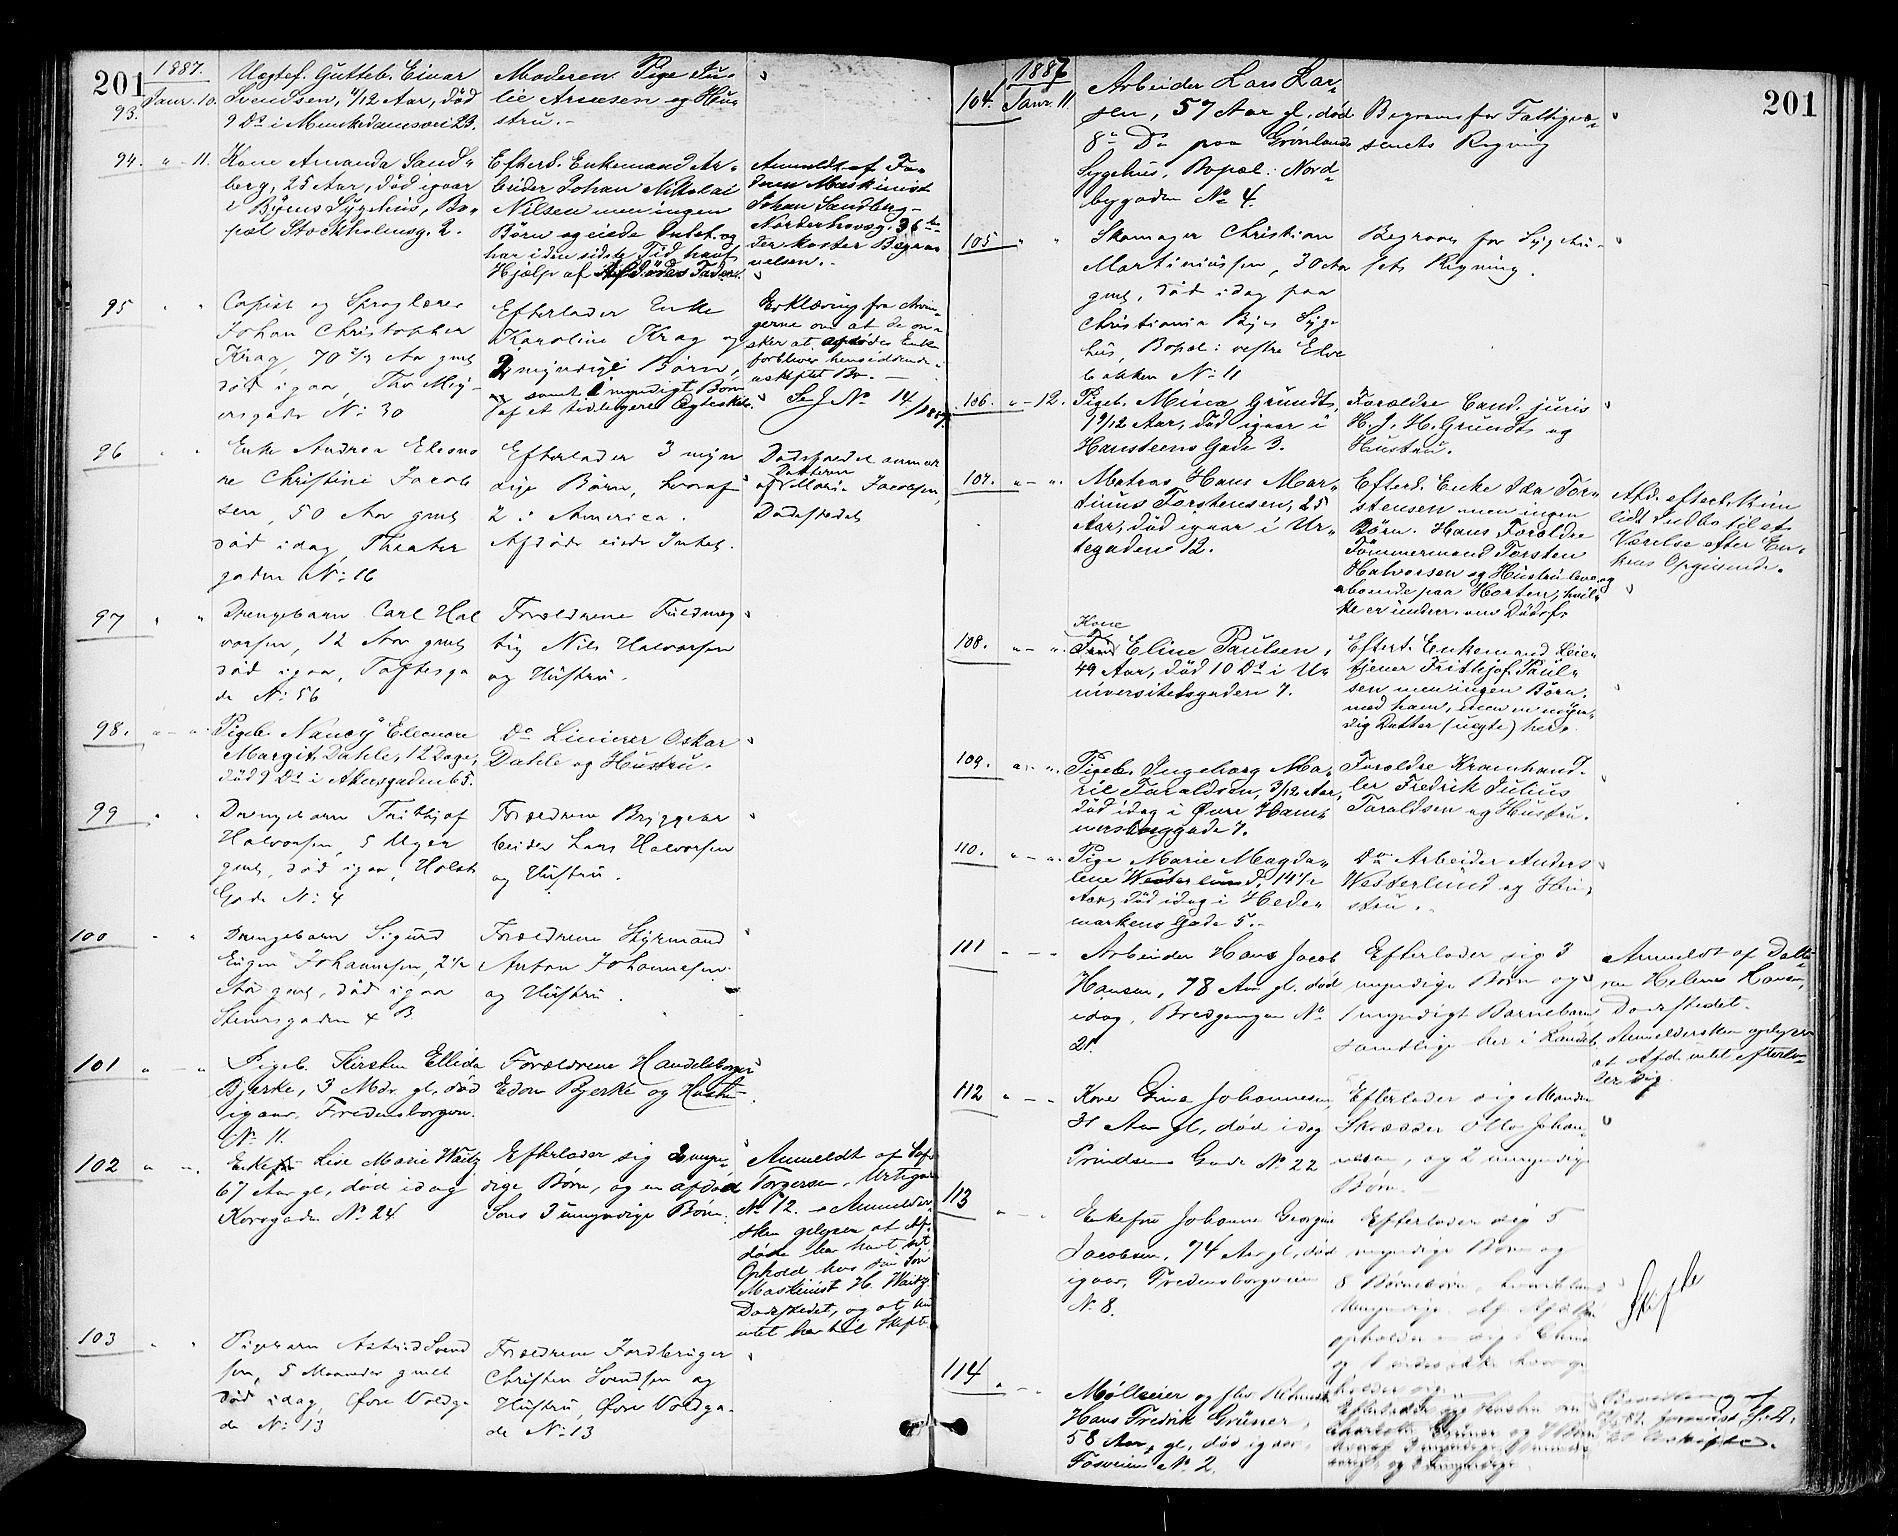 201
1887.
93.
Janr. 10.
Uægtef. Gutteb. Einar
Svendsen, 11/12 Aar, død
9 Ds i Munkedamsvei 23.
Moderen Pige Ju-
lie Arnesen og Hu-
stru.-
94. " - 11.
Kone Amanda Sand-
berg, 25 Aar, død igaar
i Byens Sygehus, Bo-
pæl Stockholmsg. 2.
Efterl. Enkemand Ar-
beider Johan Nikolai
Nilsen men ingen
Børn og eiede Intet og
har i den sidste Tid havt
Hjælp af Afdødes Fader.
Anmeldt af Fa-
deren Maskinist
Johan Sandberg
Norderhovsg. 36
der koster Begra-
velsen.-
95
Copist og Sproglærer
Johan Christopher
Krag, 70 Aar gml
død igaar, Thv. Mey-
ersgade No 30
Efterlader Enke
Karoline Krag og
2 myndige Børn,
samt 1 myndigt Barn
af et tidligere Ægteskab.
Erklæring fra Arvin-
gerne om at de øn-
sker at afdødes Enke
forbliver hensiddende i
uskiftet Bo. -
Se J No 14/1887.
96
Enke Andrea Eleono-
re Christine Jacob
sen, 50 Aar gml
død idag, Theater
gaden No 16
Efterlader 3 myn
dige Børn, hvoraf
2 i America.
Afdøde eiede Intet.
Dødsfaldet anmel
Datteren
af Maria Jacobsen,
Dødsstedet
97
Drengebarn Carl Hal
vorsen, 12 Aar gml
død igaar, Toftesga
de No 56
Forældrene Fuldmæg
tig Nils Halvorsen
og Hustru.
98.
Pigeb. Nancy Eleonore
Margit Dahle, 12 Dage,
død 9 Ds i Akersgaden 65.
Do Linierer Oskar
Dahle og Hustru.
99
Drengebarn Frithjof
Halvorsen, 5 Uger
gml, død igaar, Holst
Gade No 4
Forældrene Bryggear
beider Lars Halvorsen
og Hustru.
100
Drengebarn Sigurd
Eugen Johannesen, 2 1/2
Aar gml, død igaar
Stenersgaden 4 B.
Forældrene Styrmand
Anton Johannesen
og Hustru.
101
Pigeb. Kirsten Ellida
Bjerke, 3 Mdr. gl, død
igaar, Fredensborgvn.
No 11.
Forældrene Handelsborger
Edon Bjerke og Hustru.
102
Enkefru Lise Marie Waitz
67 Aar gl, død idag
Korsgaden No 24
Efterlader sig 2 myn-
dige Børn, og en afdød
Søns 3 umyndige Børn.
Anmeldt af
Torgersen, Urtegaden
No 12. - Anmelder-
sken oplyser at Af-
døde har havt sit
Ophold hos sin Søn
Maskinist H. Waitz
Dødsstedet, og at hun
intet har til Skift
103
Pigebarn Astrid Svend
sen, 5 Maaneder gml
død idag, Øvre Voldga-
de No 13
Forældrene Fordbruger
Christen Svendsen og
Hustru, Øvre Voldga-
de No 13
201
1887
104. Janr. 11.
Arbeider Lars Lar-
sen, 57 Aar gl, død
8de Ds paa Grønlands
Sygehus, Bopæl: Nord-
bygaden No 4.
Begraves for Fattigvæ-
senets Regning
105
Skomager Christian
Martiniussen, 30 Aar
gml, død idag paa
Christiania Byes Syge
hus, Bopæl: vestre Elve
bakken No 11
Begraves for Sygehu-
sets Regning.
106. " - 12.
Pigeb. Mina Grundt,
1 9/12 Aar, død igaar i
Hansteens Gade 3.
Forældre Cand. juris
H. J. H. Grundt og
Hustru.
107.
Matros Hans Mar-
tinius Torstensen, 25
Aar, død igaar i Ur-
tegaden 12.
Efterl. Enke Ida Tor-
stensen men ingen
Børn. Hans Forældre
Tømmermand Torsten
Halvorsen og Hustru leve og
boende paa Horten, hvil-
ke er underr. om Dødsf.
Afd. efterl. Kun
lidt Indbo til et
Værelse efter En-
kens Opgivende.
108.
Kone
Eline Paulsen,
49 Aar, død 10 Ds i U-
niversitetsgaden 7.
Efterl. Enkemand Leie-
tjener Frithjof Paul-
sen men ingen Børn
med ham, men en myn-
dig Datter (uægte) her.
109.
Pigeb. Ingeborg Ma-
rie Taraldsen, 3/12 Aar,
død idag i Øvre Ham-
mersborggade 7.
Forældre Kramhand-
ler Fredrik Julius
Taraldsen og Hustru.
110.
Pige Marie Magda-
lene Westerlund, 14 1/2
Aar, død idag i Hede-
markens Gade 5.-
Do Arbeider Anders
Westerlund og Hu-
stru.
111
Arbeider Hans Jacob
Hansen, 78 Aar gl. død
idag, Bredgangen No
21.
Efterlader sig 3
myndige Børn og
1 myndigt Barnebarn
samtlige her i Landet.
Anmeldt af Datte-
ren Helene Hansen,
Dødsstedet.
Anmeldersken oplyser
at Afd. intet efterla-
der sig.
112
Kone Gina Johannesen,
31 Aar gl, død idag
Prindsens Gade No 22
Efterlader sig Manden
Skrædder Otto Johan-
nesen, og 2 umyndige
Børn.
113
Enkefru Johanne Georgine
Jacobsen, 74 Aar gl, død
igaar, Fredensborgveien
No 8.
Efterlader sig 5
myndige Børn og
8 Børnebørn,
Umyndige. Af
opholder sig i
og 1
Skifte
114
Møllereier og
Hans Fredrik Grüner,
58 Aar gl, død igaar,
Fosveien No 2.
Efterlader sig Hustru
Charlotte Grüner og 7 Børn